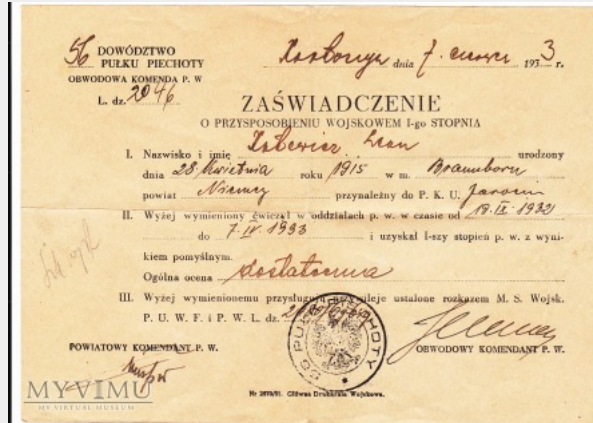 56 DOWÓDZTWO
PUŁKU PIECHOTY
OBWODOWA KOMENDA P. W
L. dz. 2046
dnia 7. czerwca 1933 r.
ZAŚWIADCZENIE
O PRZYSPOSOBIENIU WOJSKOWEM I-go STOPNIA
I. Nazwisko i imię Leon urodzony
dnia 28 kwietnia roku 1915 w m.
powiat Niemcy przynależny do P. K. U. Jarocin
II. Wyżej wymieniony ćwiczył w oddziałach p. w. w czasie od 19.IX.1932
do 7.IV.1933 i uzyskał I-szy stopień p. w. z wyni-
kiem pomyślnym.
Ogólna ocena dostateczna
III. Wyżej wymienionemu przysługują przywileje ustalone rozkazem M. S. Wojsk.
P. U. W. F. i P. W. L. dz.
PUŁK PIECHOTY
POWIATOWY KOMENDANT P. W.
OBWODOWY KOMENDANT P. W.
MYVIMU
MY VIRTUAL MUSEUM
Główna Drukarnia Wojskowa.